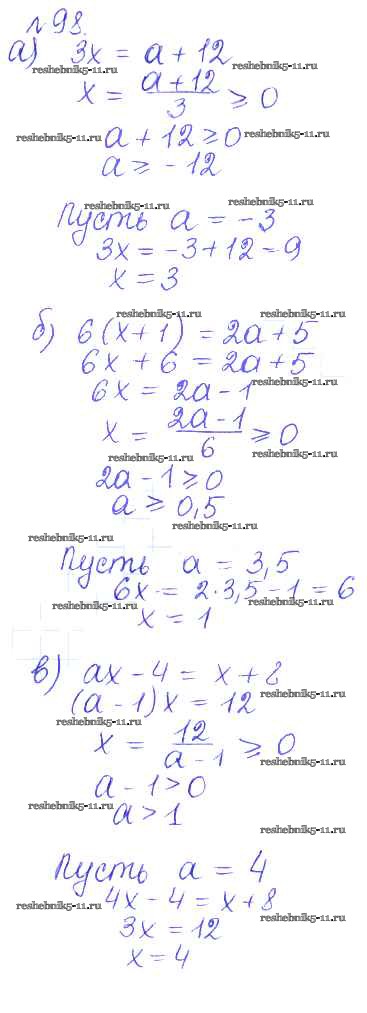 № 98.
а) 3x = a + 12
reshebnik5-11.ru reshebnik5-11.ru
x = (a + 12)/3 ≥ 0
reshebnik5-11.ru a + 12 ≥ 0 reshebnik5-11.ru
a ≥ -12
reshebnik5-11.ru reshebnik5-11.ru
Пусть a = -3
3x = -3 + 12 = 9
x = 3
reshebnik5-11.ru reshebnik5-11.ru
б) 6(x + 1) = 2a + 5
6x + 6 = 2a + 5
reshebnik5-11.ru
6x = 2a - 1
x = (2a - 1)/6 ≥ 0
reshebnik5-11.ru reshebnik5-11.ru
2a - 1 ≥ 0
a ≥ 0,5
reshebnik5-11.ru reshebnik5-11.ru
Пусть a = 3,5
6x = 2·3,5 - 1 = 6
reshebnik5-11.ru reshebnik5-11.ru
x = 1
в) ax - 4 = x + 8
reshebnik5-11.ru
(a - 1)x = 12
reshebnik5-11.ru
x = 12/(a - 1) ≥ 0
reshebnik5-11.ru
a - 1 > 0
reshebnik5-11.ru
a > 1
reshebnik5-11.ru
Пусть a = 4
4x - 4 = x + 8
reshebnik5-11.ru reshebnik5-11.ru
3x = 12
x = 4